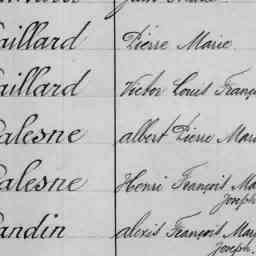 aillard Pierre Marie
aillard Victor Louis Franç
alesne albert Pierre Mari
alesne Henri François Ma
Joseph
andin alexis François Mar
Joseph.